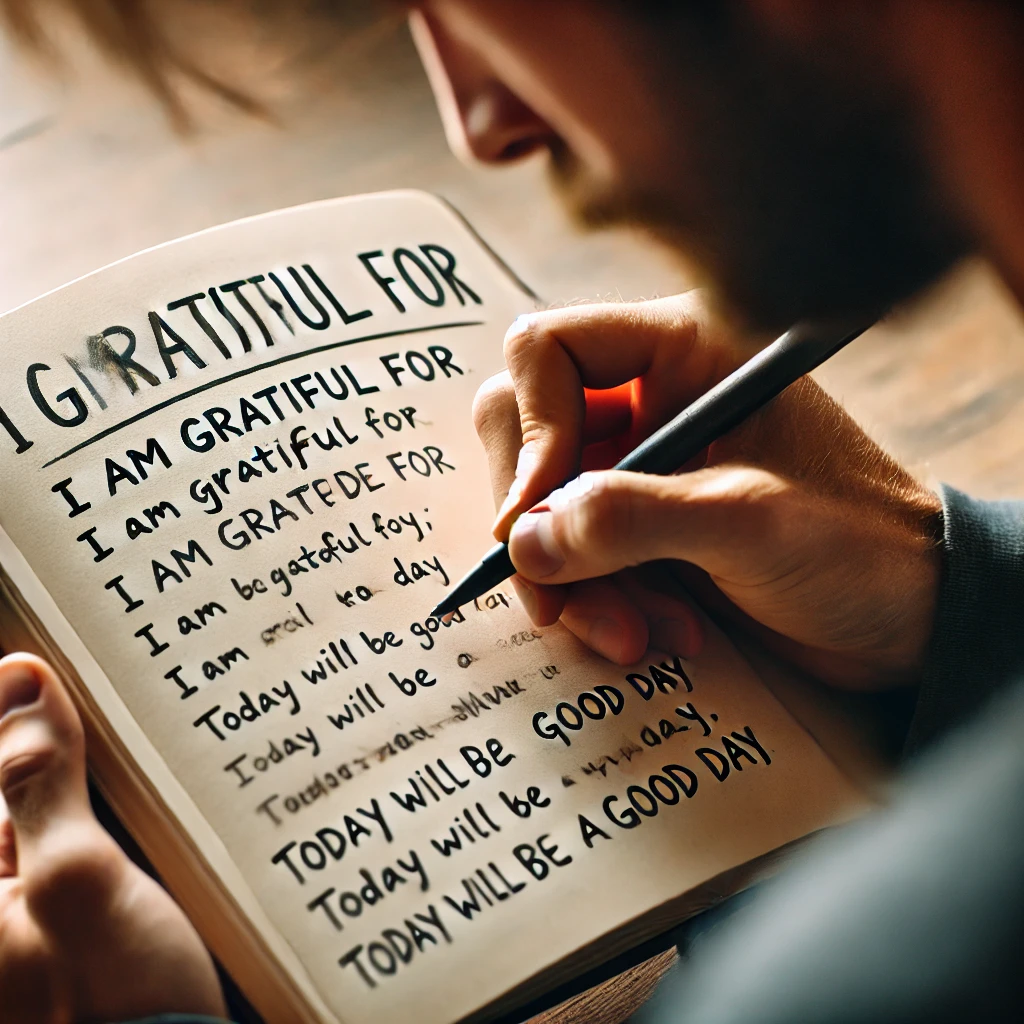 I GRATITFUL FOR
I AM GRATIFUL FOR
I am gratiful for
I AM GRATEDE FOR
I am be gatoful foy;
I am day
Today will be good
Today will be a
TODAY WILL BE GOOD DAY
Today will be a day.
TODAY WILL BE A GOOD DAY